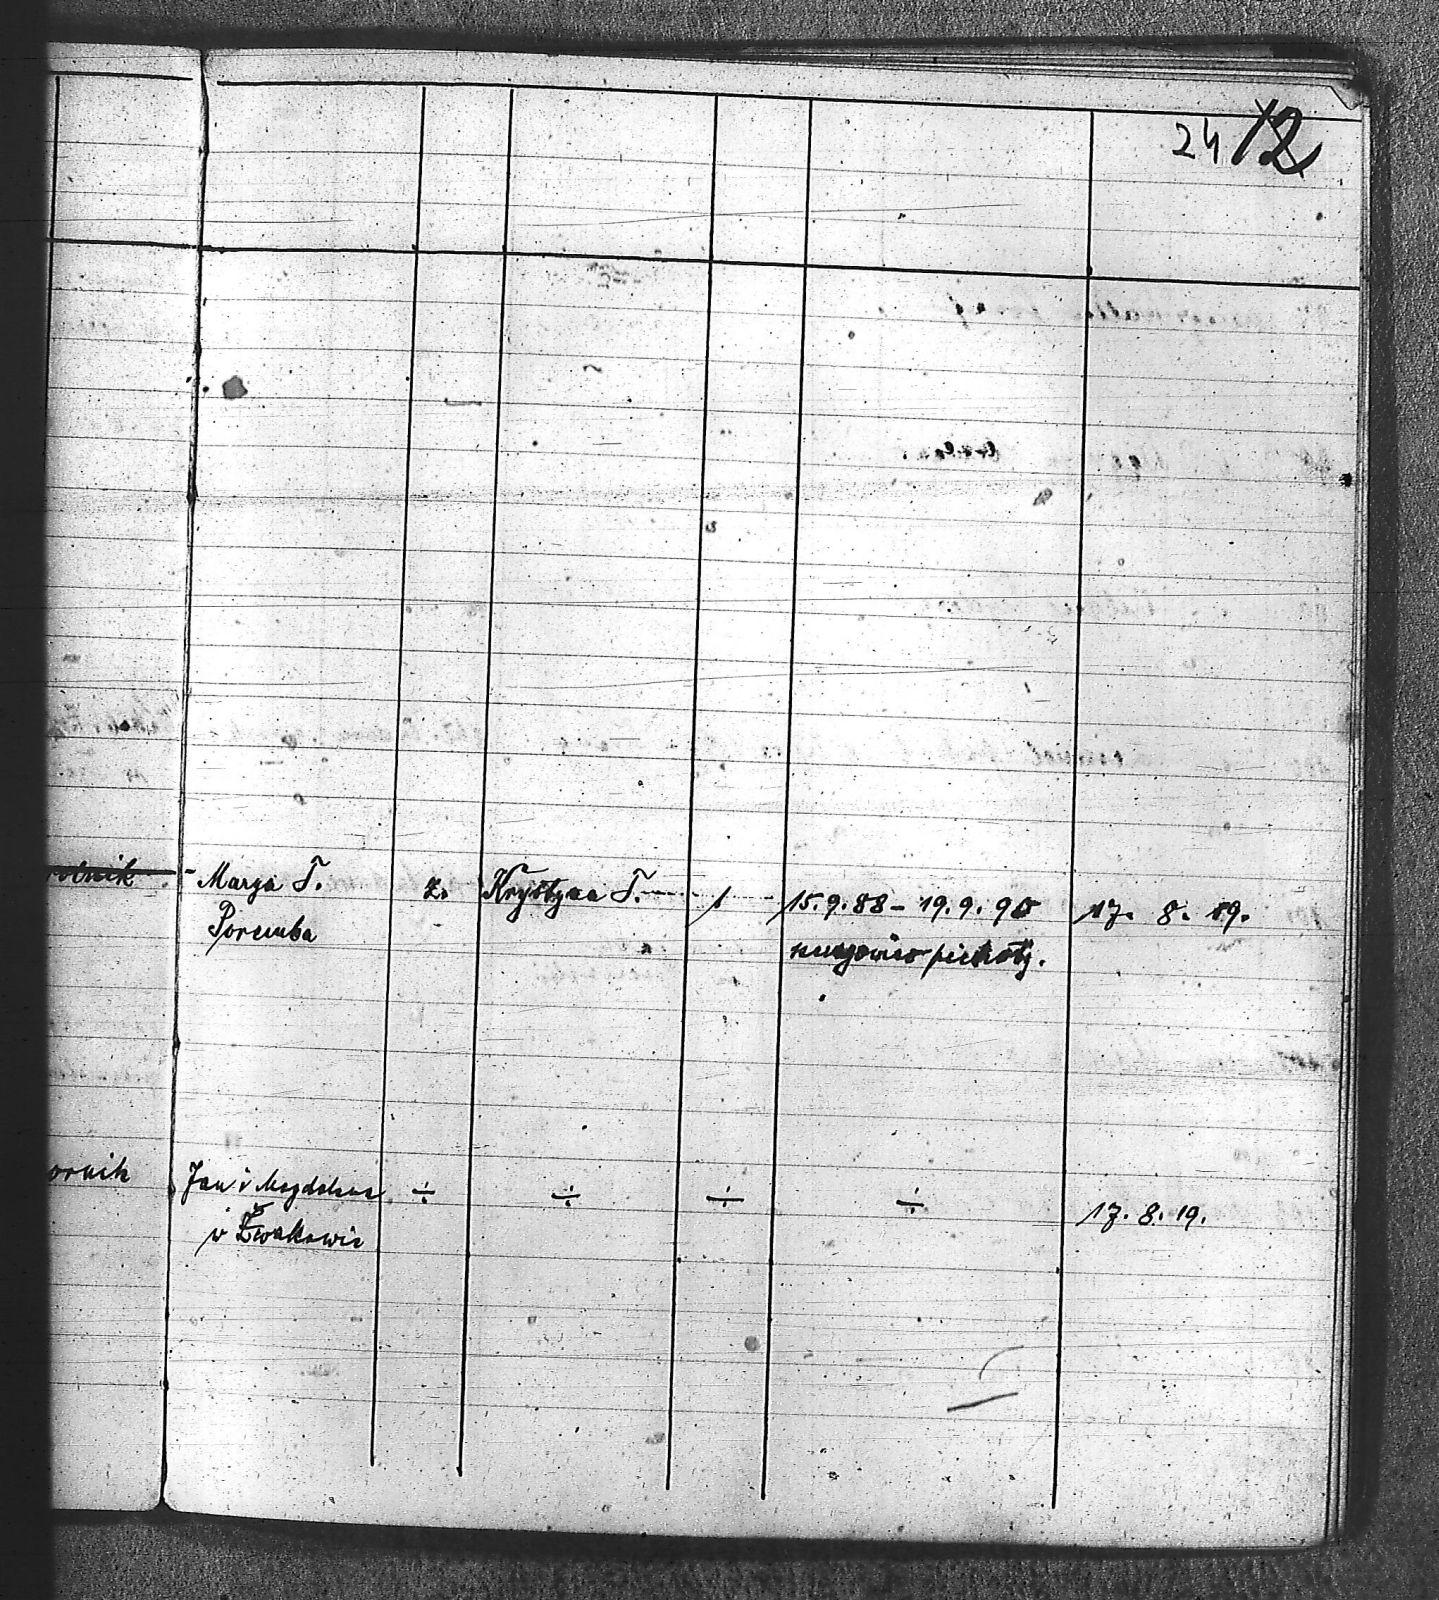 24 12
rolnik Marya T. ż. Krystyna T. 1 15.9.88 – 19.9.90 17. 8. 19.
Poremba piechoty.
ornik Jan i Magdalena ÷ ÷ ÷ ÷ 17. 8. 19.
w Żwakowie